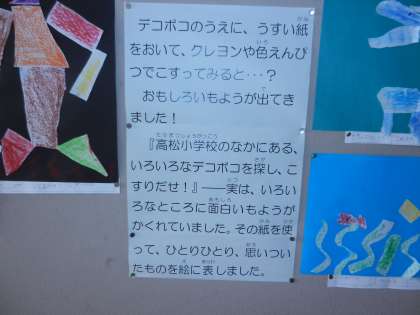 デコボコのうえに、うすい紙
をおいて、クレヨンや色えんぴ
つでこすってみると…？
おもしろいもようが出てき
ました！
『高松小学校のなかにある、
いろいろなデコボコを探し、こ
すりだせ！』――実は、いろい
ろなところに面白いもようが
かくれていました。その紙を使
って、ひとりひとり、思いつい
たものを絵に表しました。